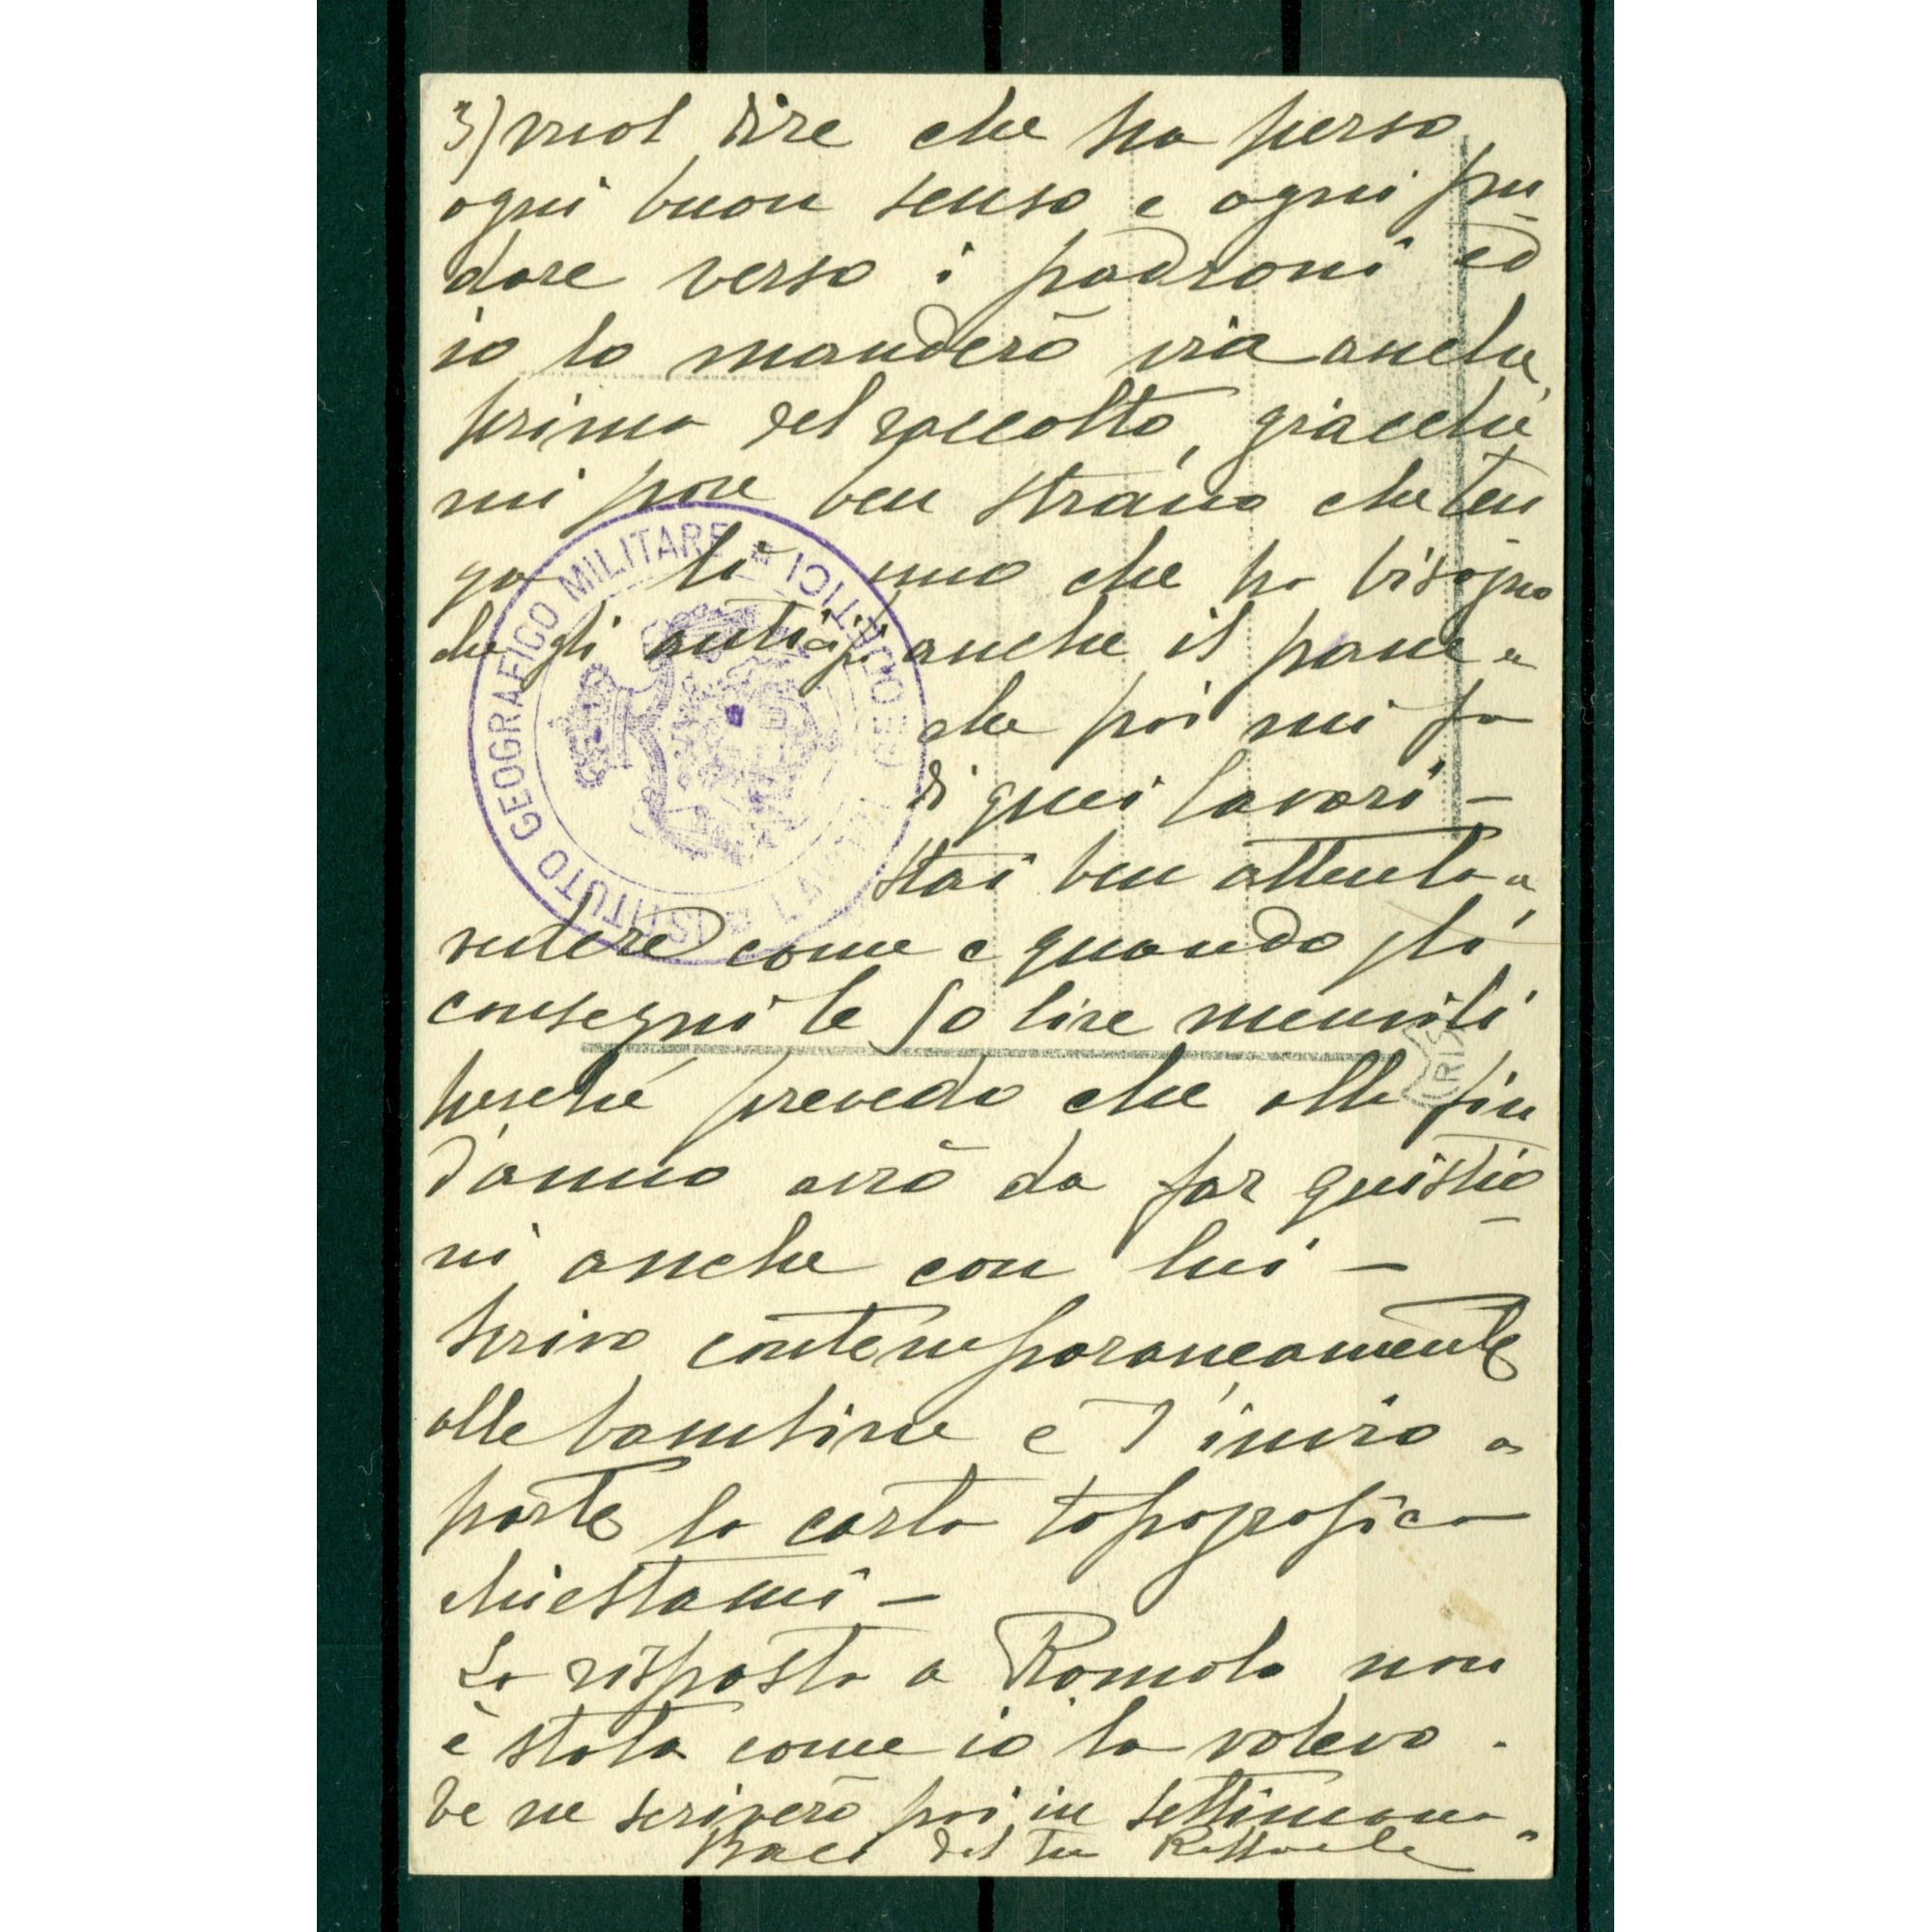 3) vuol dire che ha perso
ogni buon senso e ogni pu
dore verso i padroni ed
io lo manderò via anche
prima del raccolto, giacchè
mi pare ben strano che ten
ga lì uno che ha bisogno
che gli anticipi anche il pane e
che poi mi fa
di quei lavori —
Stai ben attenta a
vedere come e quando gli
consegni le 50 lire mensili
perché prevedo che alla fin
d'anno avrò da far quistio
ni anche con lui —
Scrivo contemporaneamente
alle bambine e T'invio a
parte la carta topografica
chiestami —
La risposta a Romolo non
è stata come io la volevo.
Ve ne scriverò poi in settimana.
Baci dal tuo Raffaele
ISTITUTO GEOGRAFICO MILITARE
LAVORI GEODETICI